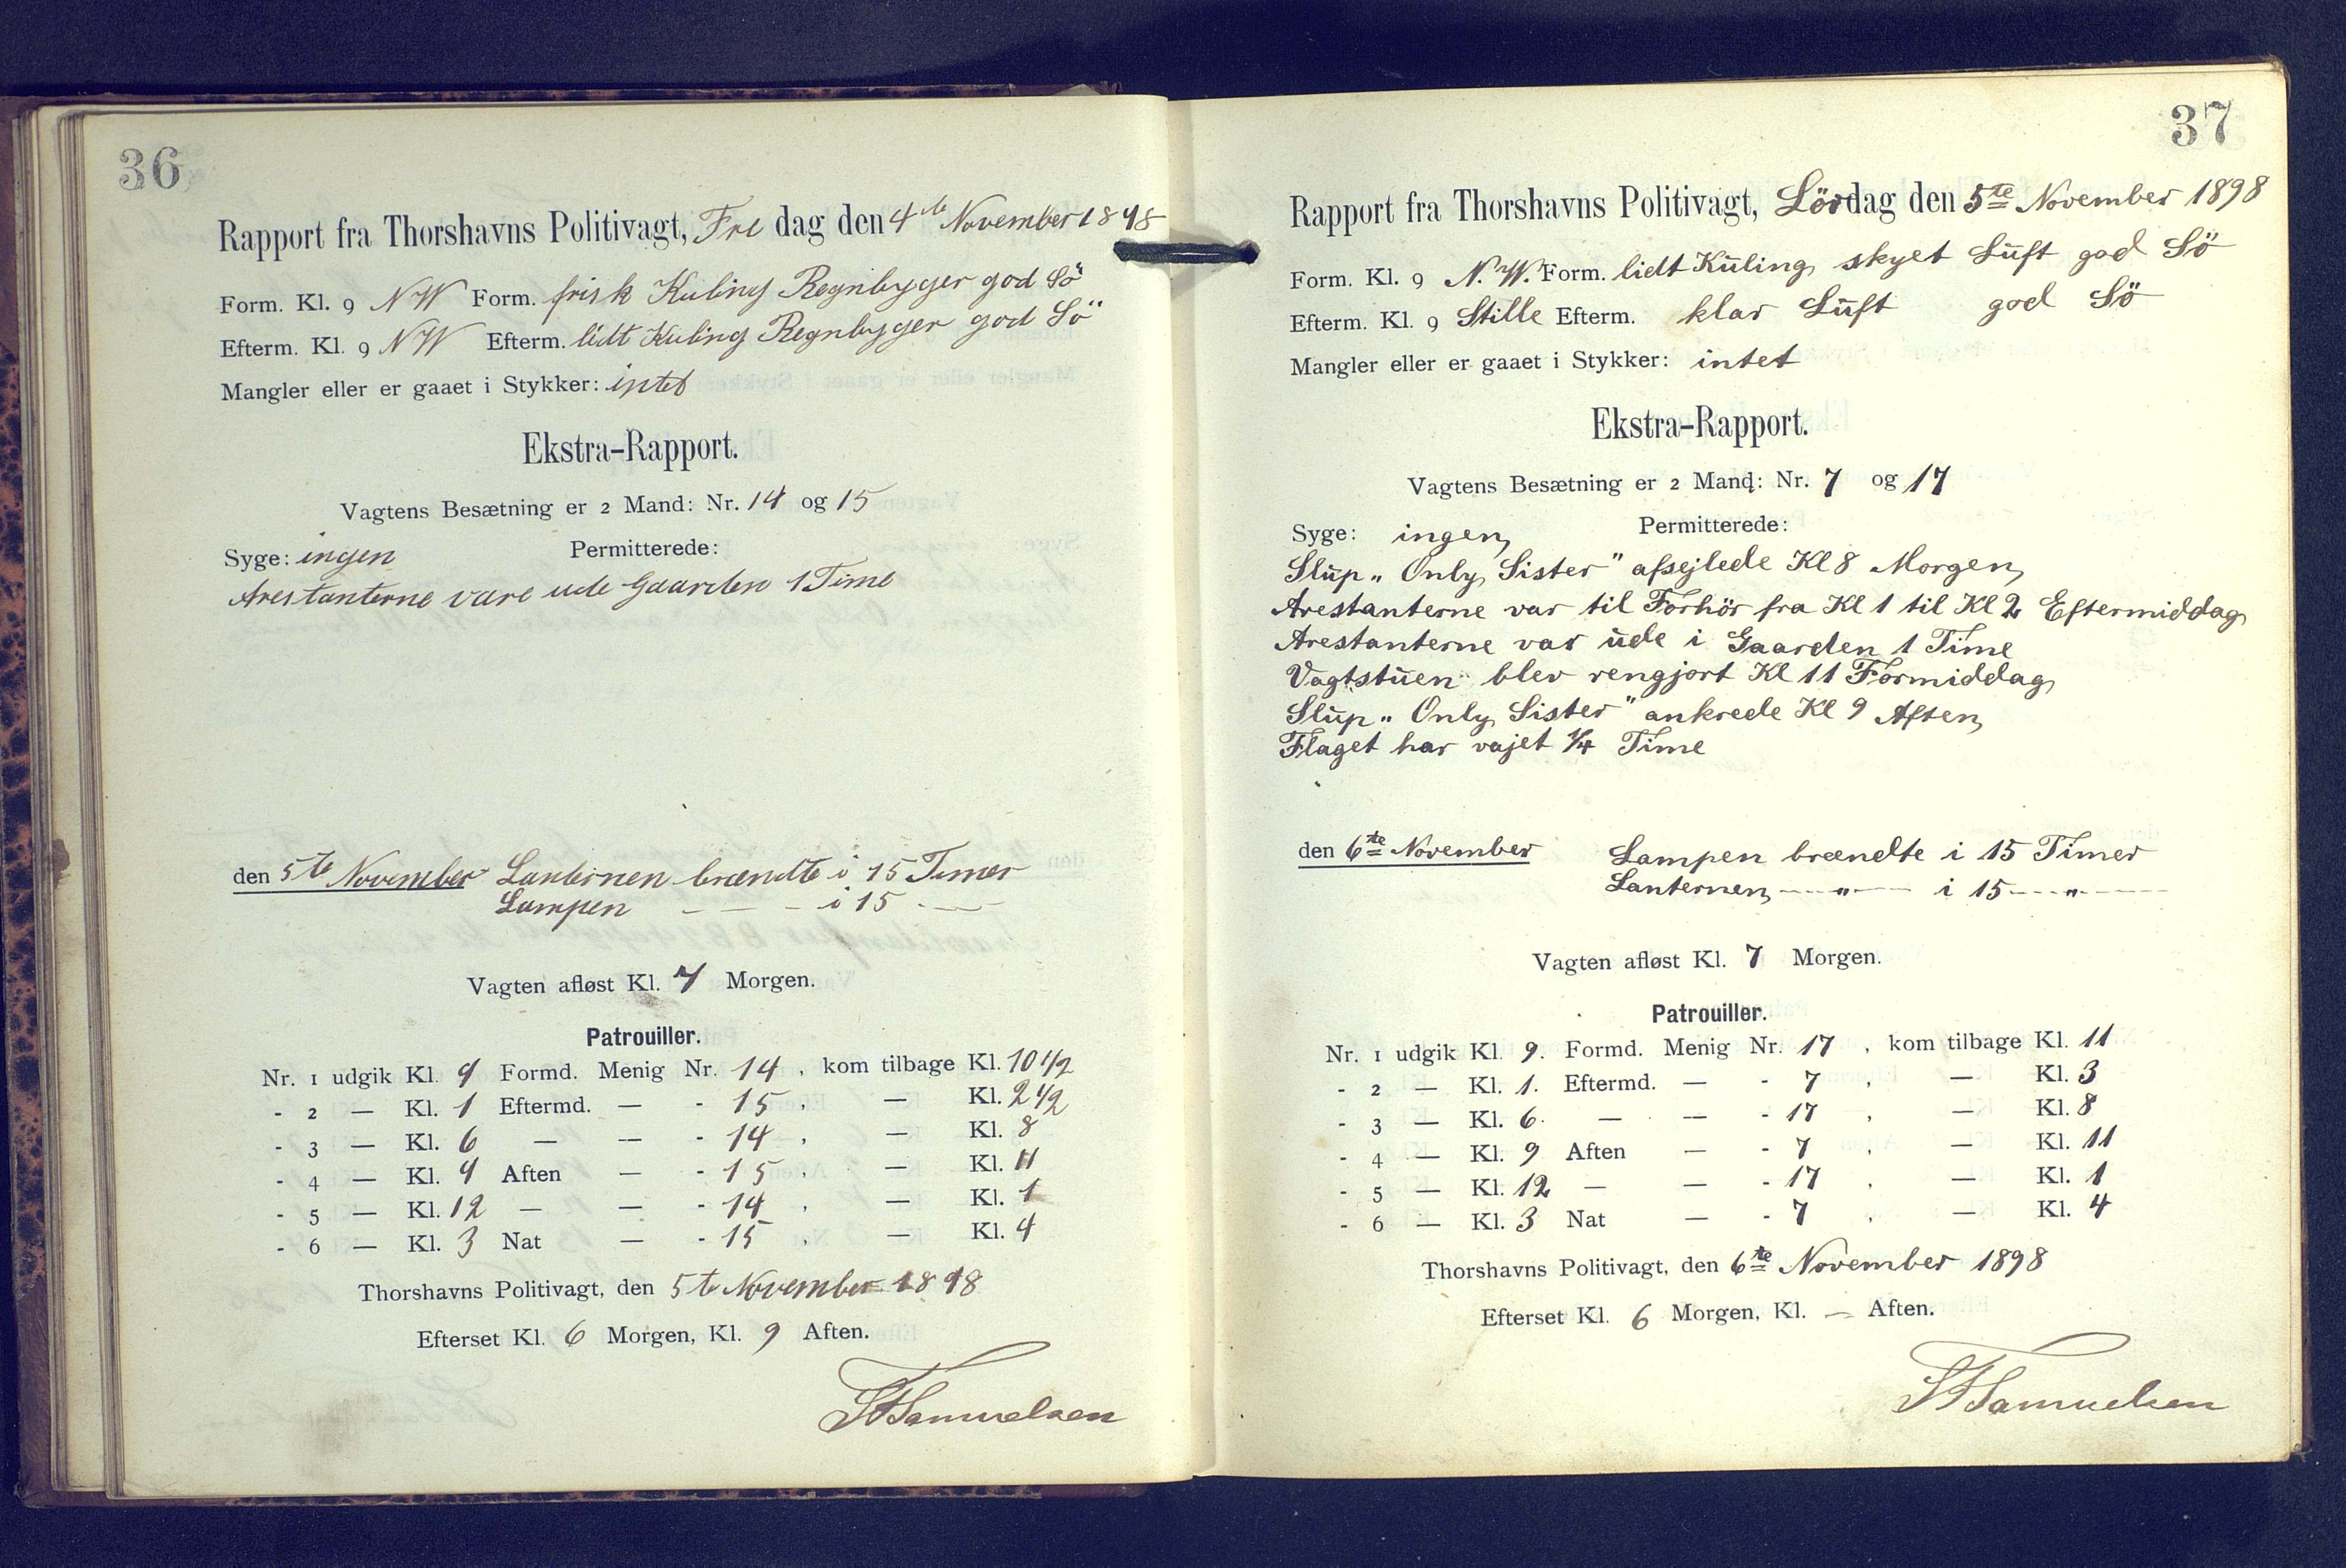 36
Rapport fra Thorshavns Politivagt, Fre dag den 4de November 1898
Form. Kl. 9 NW Form. frisk Kuling Regnbyger god Sö
Efterm. Kl. 9 NW Efterm. lidt Kuling Regnbyger god Sö
Mangler eller er gaaet i Stykker: intet
Ekstra-Rapport.
Vagtens Besætning er 2 Mand: Nr. 14 og 15
Syge: ingen Permitterede:
Arestanterne vare ude Gaarden 1 Time
den 5te November Lanternen brændte i 15 Timer
Lampen — — - i 15 - —
Vagten afløst Kl. 7 Morgen.
Patrouiller.
Nr. 1 udgik Kl. 9 Formd. Menig Nr. 14 , kom tilbage Kl. 10 1/2
- 2 — Kl. 1 Eftermd. — - 15 , — Kl. 2 1/2
- 3 — Kl. 6 — — - 14 , — Kl. 8
- 4 — Kl. 9 Aften — - 15 , — Kl. 11
- 5 — Kl. 12 — — - 14 , — Kl. 1
- 6 — Kl. 3 Nat — - 15 , — Kl. 4
Thorshavns Politivagt, den 5te November 1898
Efterset Kl. 6 Morgen, Kl. 9 Aften.
Samuelsen
37
Rapport fra Thorshavns Politivagt, Lördag den 5te November 1898
Form. Kl. 9 N.W. Form. lidt Kuling skyet Luft god Sö
Efterm. Kl. 9 Stille Efterm. klar Luft god Sö
Mangler eller er gaaet i Stykker: intet
Ekstra-Rapport.
Vagtens Besætning er 2 Mand: Nr. 7 og 17
Syge: ingen Permitterede:
Slup „ Only Sister" afsejlede Kl 8 Morgen
Arestanterne var til Forhör fra Kl 1 til Kl 2 Eftermiddag
Arestanterne var ude i Gaarden 1 Time
Vagtstuen blev rengjort Kl 11 Formiddag
Slup „ Only Sister" ankrede Kl 9 Aften
Flaget har vajet 1/4 Time
den 6te November Lampen brændte i 15 Timer
Lanternen — „ — i 15 — „ —
Vagten afløst Kl. 7 Morgen.
Patrouiller.
Nr. 1 udgik Kl. 9. Formd. Menig Nr. 17 , kom tilbage Kl. 11
- 2 — Kl. 1. Eftermd. — - 7 , — Kl. 3
- 3 — Kl. 6. — — - 17 , — Kl. 8
- 4 — Kl. 9 Aften — - 7 , — Kl. 11
- 5 — Kl. 12 — — - 17 , — Kl. 1
- 6 — Kl. 3 Nat — - 7 , — Kl. 4
Thorshavns Politivagt, den 6te November 1898
Efterset Kl. 6 Morgen, Kl. — Aften.
Samuelsen